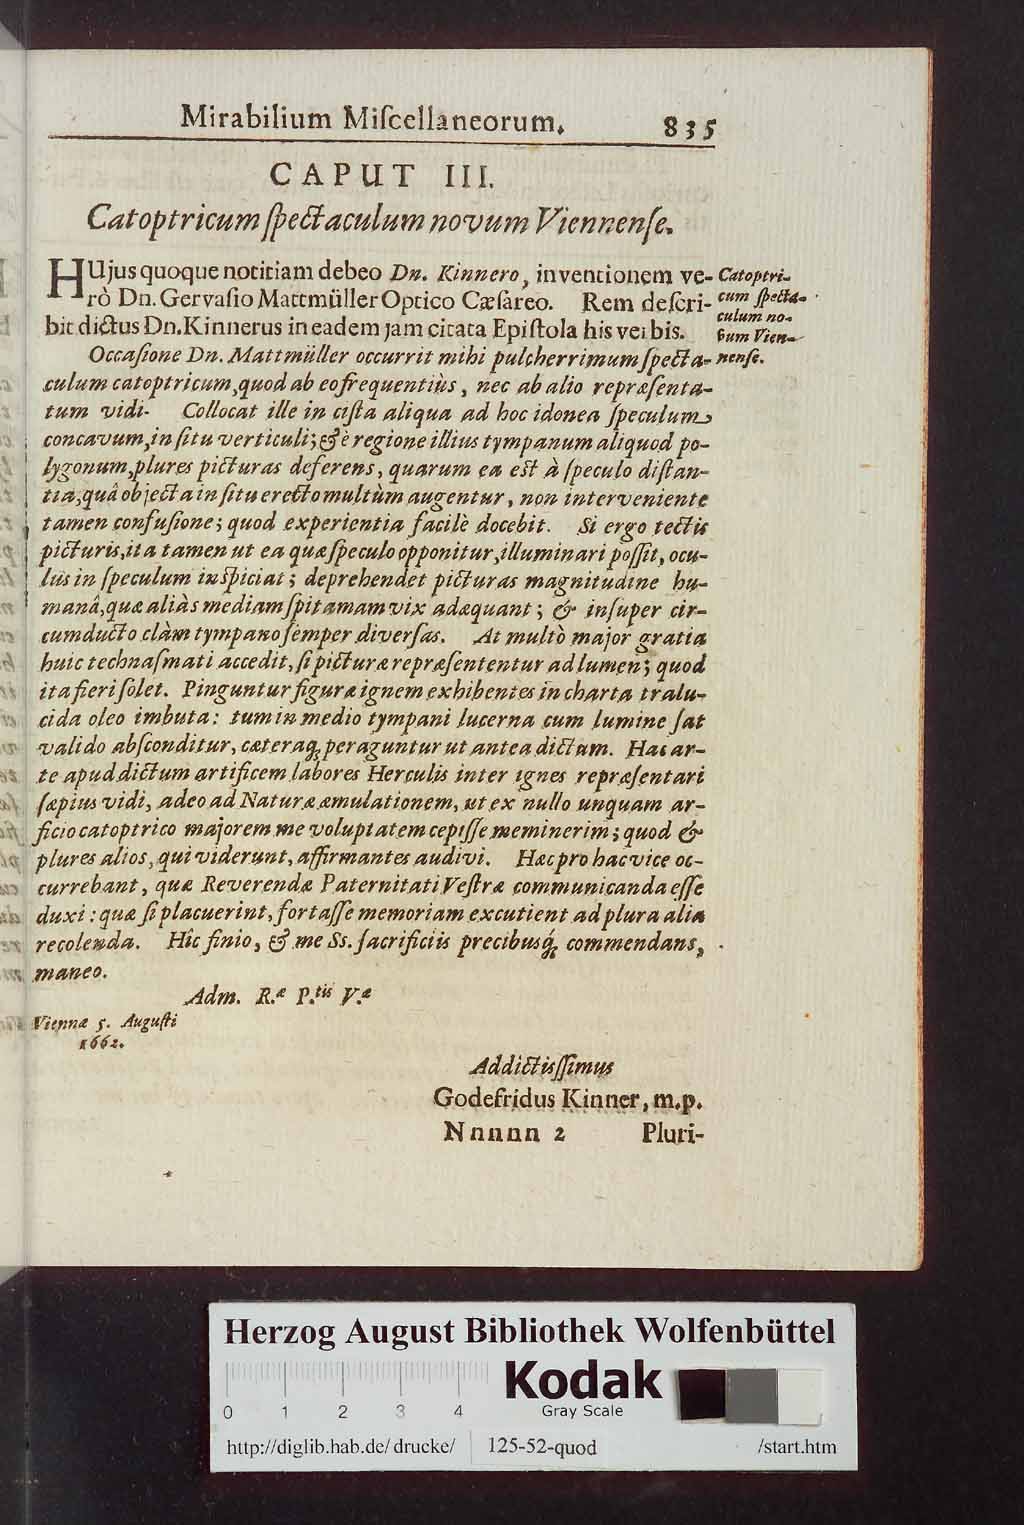 Mirabilium Miſcellaneorum. 835
CAPUT III.
Catoptricum ſpectaculum novum Viennenſe.
HUjus quoque notitiam debeo Dn. Kinnero, inventionem ve-
rò Dn. Gervaſio Mattmüller Optico Cæſareo. Rem deſcri-
bit dictus Dn. Kinnerus in eadem jam citata Epiſtola his verbis.
Catoptri-
cum ſpecta-
culum no-
vum Vien-
nenſe.
Occaſione Dn. Mattmüller occurrit mihi pulcherrimum ſpecta-
culum catoptricum, quod ab eo frequentiùs, nec ab alio repræſenta-
tum vidi. Collocat ille in ciſta aliqua ad hoc idonea ſpeculum
concavum, in ſitu verticuli; & è regione illius tympanum aliquod po-
lygonum, plures picturas deferens, quarum ea eſt à ſpeculo diſtan-
tia, quâ objecta in ſitu erecto multùm augentur, non interveniente
tamen confuſione; quod experientia facilè docebit. Si ergo tectis
picturis, ita tamen ut ea quæ ſpeculo opponitur, illuminari poſſit, ocu-
lus in ſpeculum inſpiciat; deprehendet picturas magnitudine hu-
manâ, quæ aliàs mediam ſpitamam vix adæquant; & inſuper cir-
cumducto clàm tympano ſemper diverſas. At multò major gratia
huic technaſmati accedit, ſi picturæ repræſententur ad lumen; quod
ita fieri ſolet. Pinguntur figuræ ignem exhibentes in charta tralu-
cida oleo imbuta: tum in medio tympani lucerna cum lumine ſat
valido abſconditur, cæteraq; peraguntur ut antea dictum. Hac ar-
te apud dictum artificem labores Herculis inter ignes repræſentari
ſæpius vidi, adeo ad Naturæ æmulationem, ut ex nullo unquam ar-
ficio catoptrico majorem me voluptatem cepiſſe meminerim; quod &
plures alios, qui viderunt, affirmantes audivi. Hæc pro hac vice oc-
currebant, quæ Reverendæ Paternitati Veſtræ communicanda eſſe
duxi: quæ ſi placuerint, fortaſſe memoriam excutient ad plura alia
recolenda. Hîc finio, & me Ss. ſacrificiis precibusq́; commendans,
maneo.
Adm. R.æ P.tis V.æ
Viennæ 5. Auguſti
1662.
Addictiſſimus
Godefridus Kinner, m.p.
Nnnnn 2 Pluri-
Herzog August Bibliothek Wolfenbüttel
Kodak
Gray Scale
0 1 2 3 4
http://diglib.hab.de/drucke/ 125-52-quod /start.htm